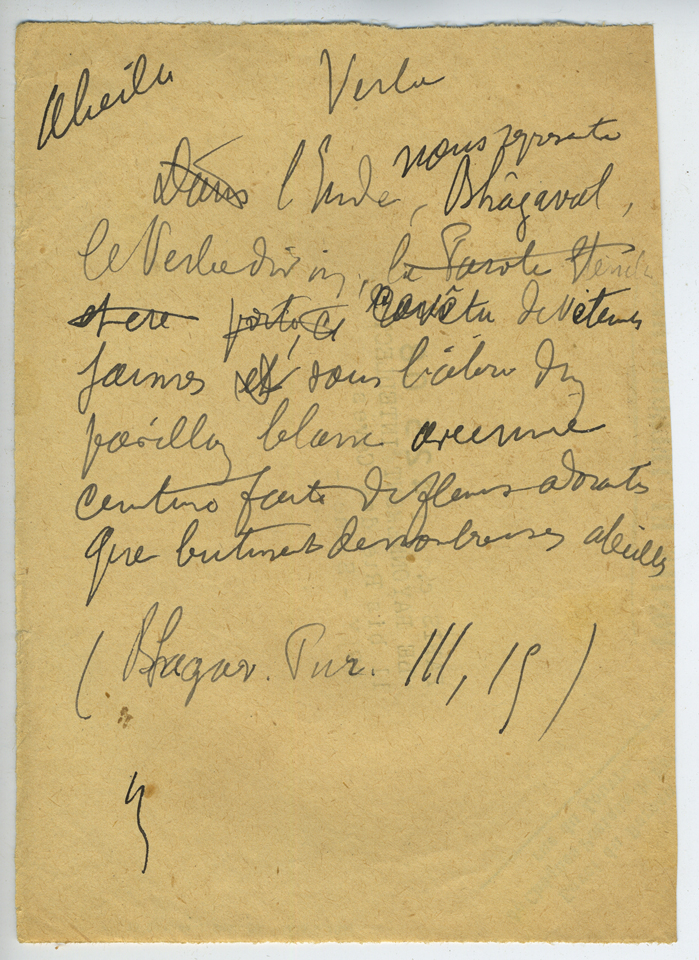 Abeille
Verbe
nous représente
Dans l'Inde, Bhâgavat,
le Verbe divin, la Parole
est revêtu de vêtements
jaunes et sous l'arbre du
pavillon blanc avec une
ceinture faite de fleurs odorantes
que butinent de nombreuses abeilles
(Bhagav. Pur. III, 15)